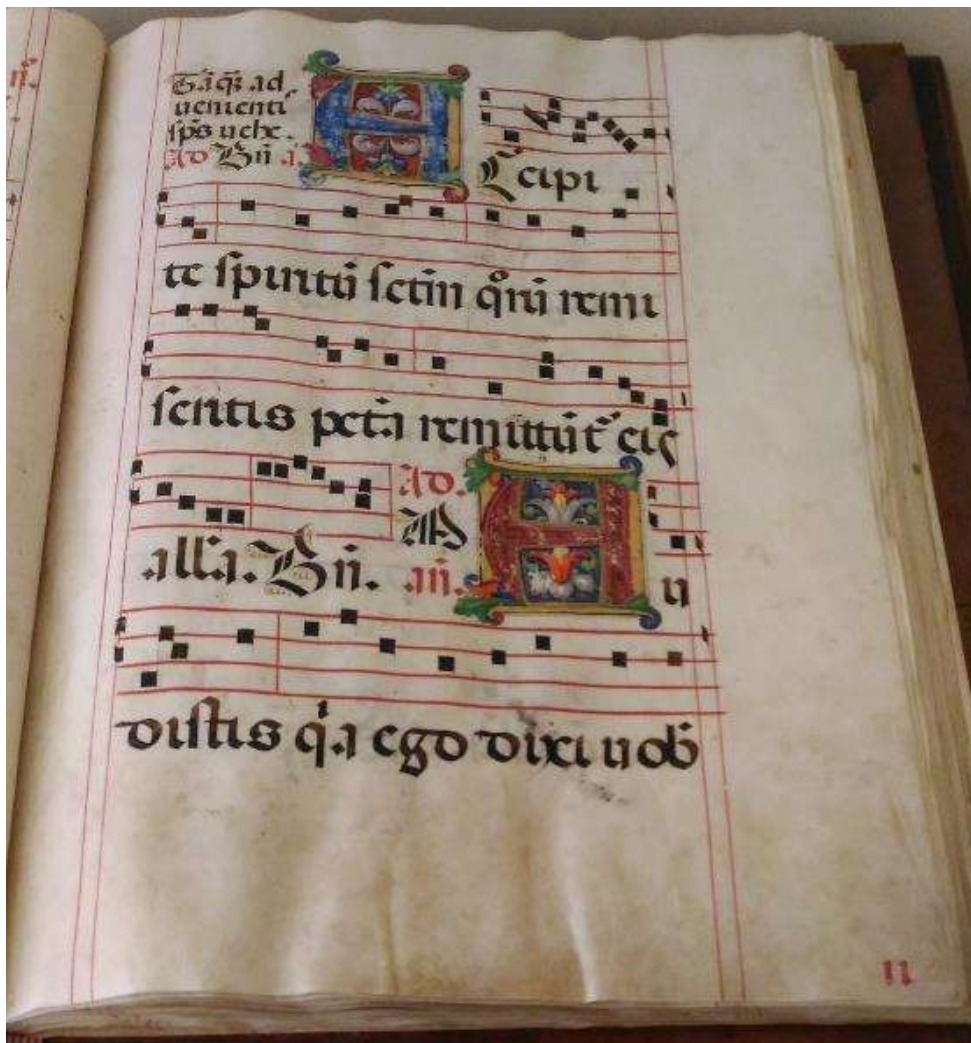 Taq̃z ad
uenienti
sp̃s uehe.
Ad Bñ a.
Acc̃ipi
te spiritũ sctm̃ qͦrũ remi
seritis pctã remittũt᷑ eis
all'a. Bñ. Ad
Mag. añ. Au
distis q̃a ego dixi uob̃
11